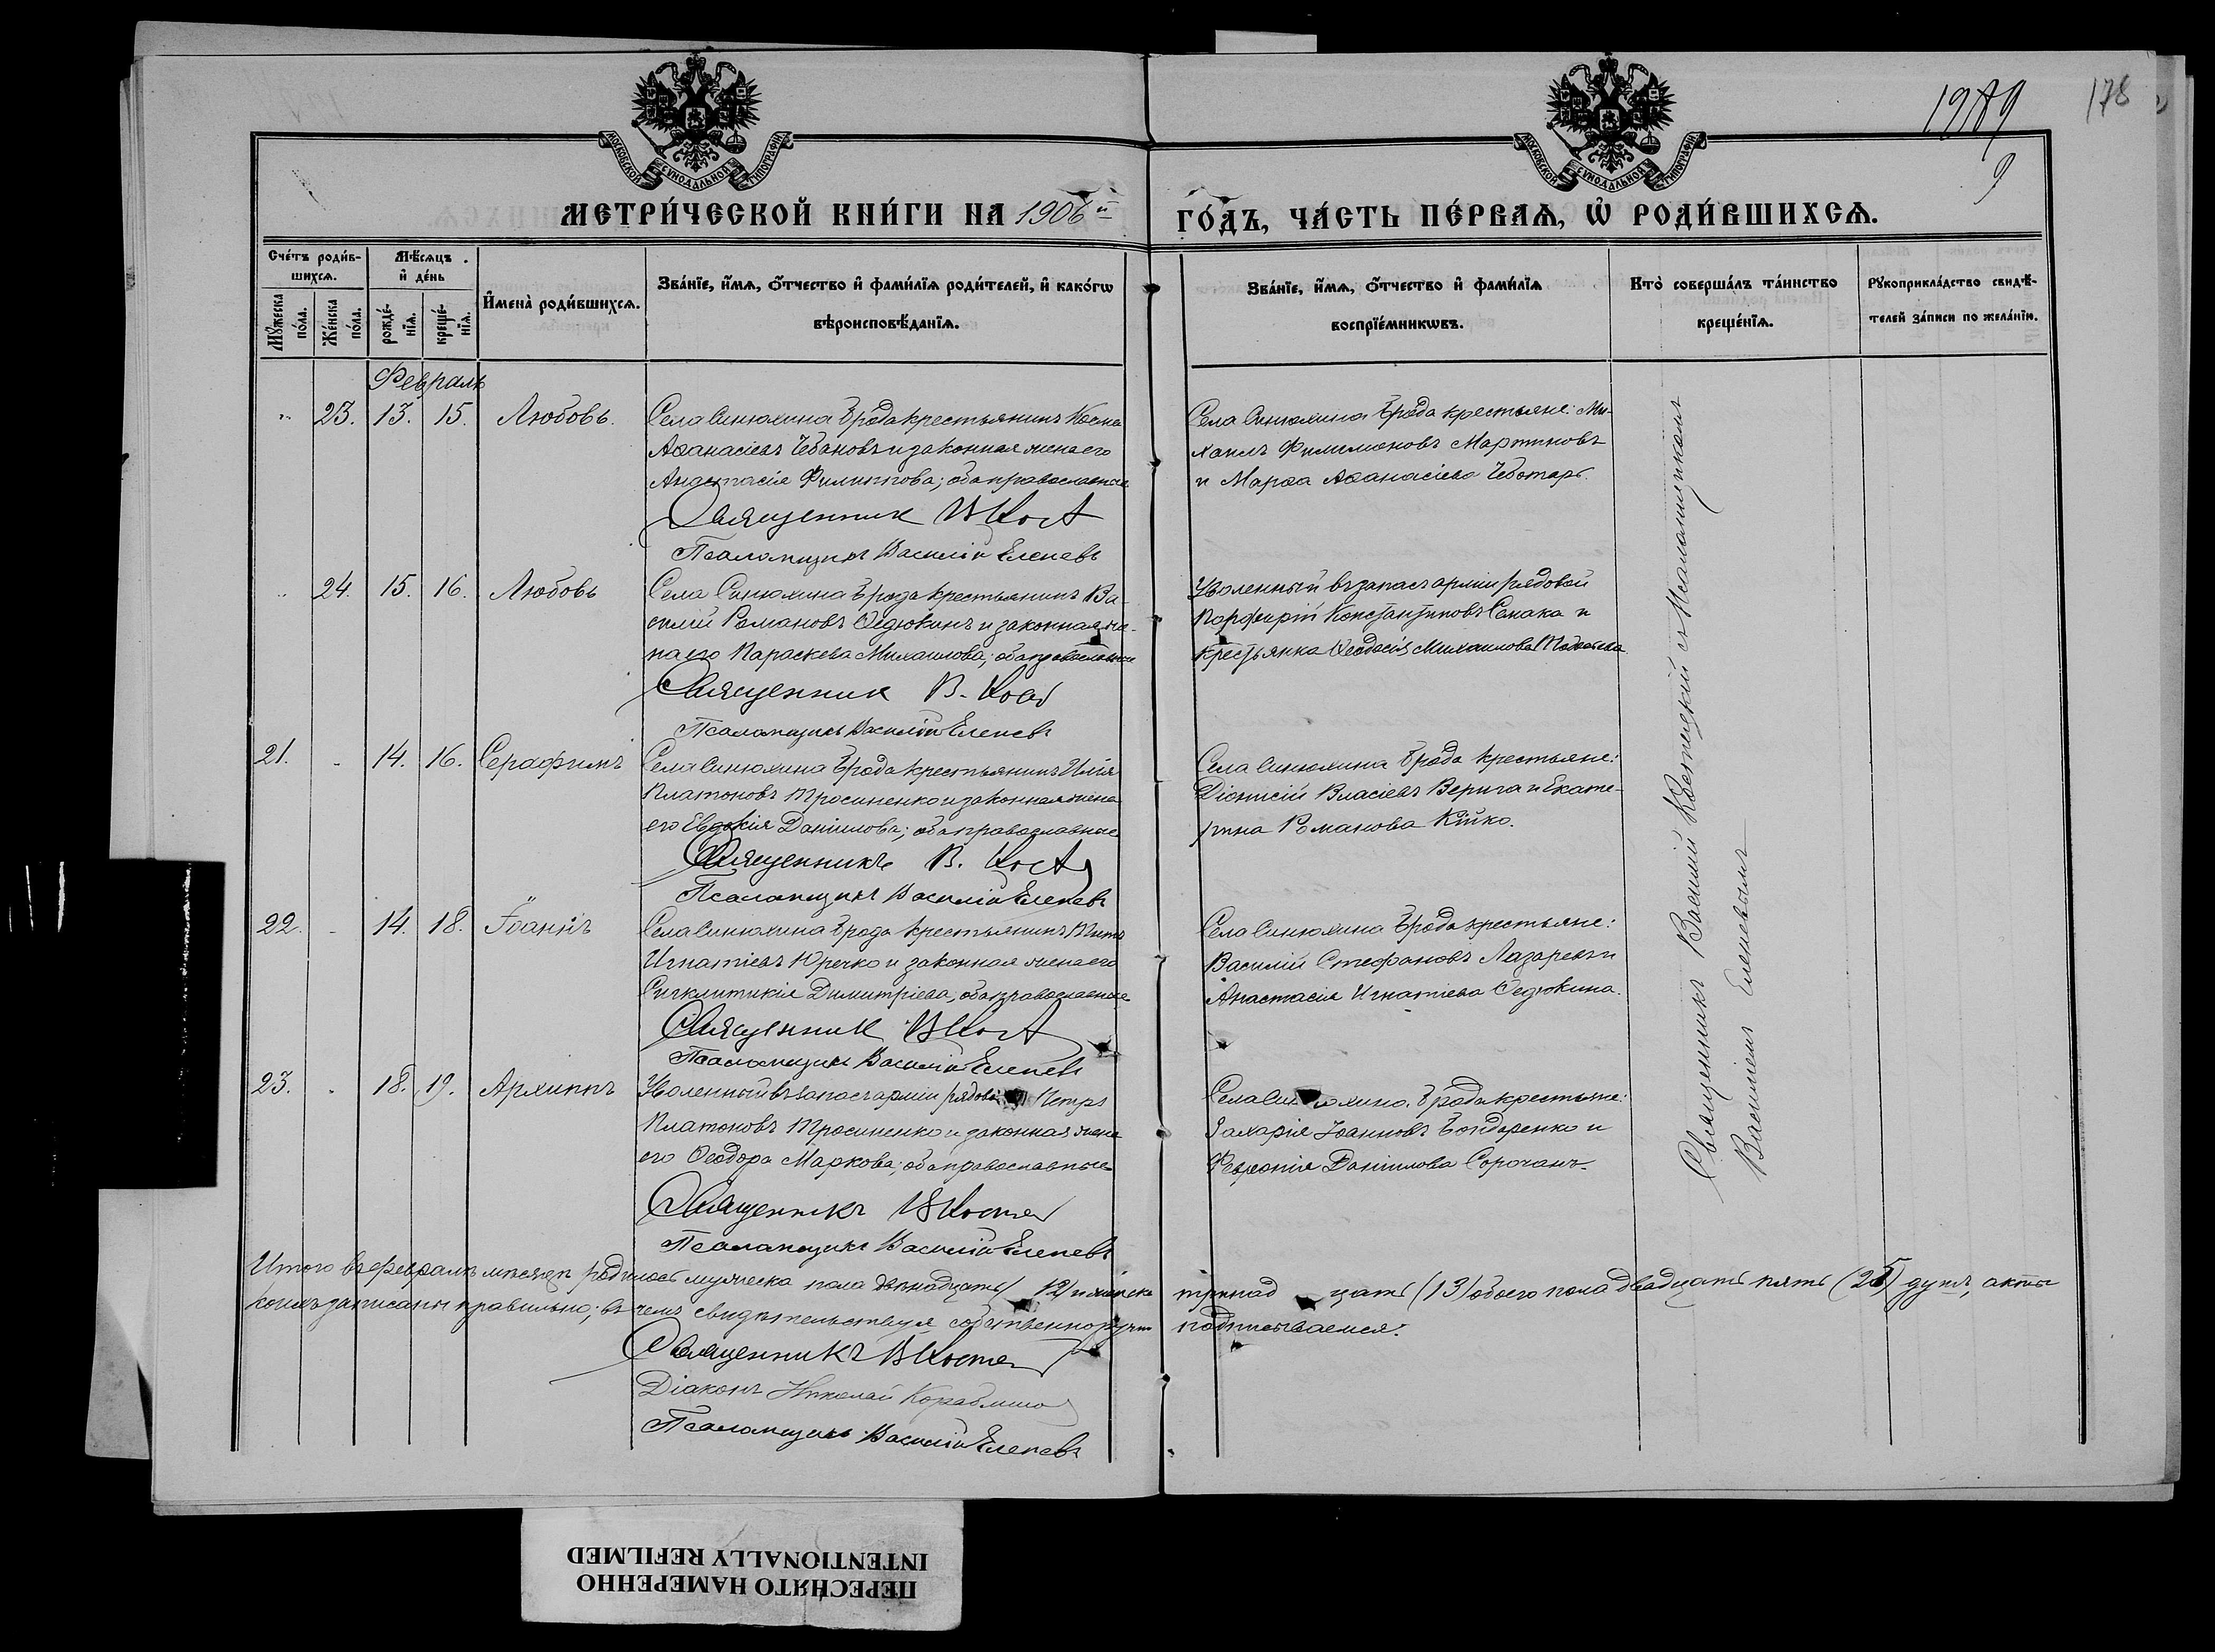 МОСКОВСКОЙ СѴНОДАЛЬНОЙ ТИПОГРАФІИ
МОСКОВСКОЙ СѴНОДАЛЬНОЙ ТИПОГРАФІИ
178
9
МЕТРИ́ЧЕСКОЙ КНИ́ГИ НА 1906й
ГО́ДЪ, ЧА́СТЬ ПЕ́РВАѦ, Ѡ҆ РОДИ́ВШИХСѦ.
Сче́тъ роди́в-
шихсѧ.
Мѣ́сѧцъ
и҆ де́нь
Мꙋ́жеска
по́ла.
Же́нска
по́ла.
рожде́-
нїѧ.
креще́-
нїѧ.
И҆мена̀ роди́вшихсѧ.
Зва́нїе, и҆́мѧ, ѻ҆́тчество и҆ фами́лїѧ роди́телей, и҆ како́гѡ
вѣроисповѣ́данїѧ.
Зва́нїе, и҆́мѧ, ѻ҆́тчество и҆ фами́лїѧ
воспрїе́мникѡвъ.
Кто̀ соверша́лъ та́инство
креще́нїѧ.
Рꙋкоприкла́дство свидѣ́-
телей за́писи по жела́нїю.
Февраль
" 23. 13. 15. Любовь.
Села Синюхина Брода крестьянинъ Косма
Аѳанасіевъ Чебановъ и законная жена его
Анастасія Филиппова; оба православные
Священник В Кост
Псаломщикъ Василій Еленевъ
Села Синюхина Брода крестьяне: Ми-
хаилъ Филимоновъ Мартиновъ
и Марѳа Аѳанасіева Чеботарь.
" 24. 15. 16. Любовь
Села Синюхина Брода крестьянинъ Ва-
силій Романовъ Ѳедюкинъ и законная же-
на его Параскева Михаилова; оба православные
Священник В. Кост
Псаломщикъ Василій Еленевъ
Уволенный въ запасъ арміи рядовой
Порфирій Константиновъ Семака и
крестьянка Ѳеодосія Михаилова
21. - 14. 16. Серафимъ
Села Синюхина Брода крестьянинъ Илія
Платоновъ Тросиненко и законная жена
его Евдокія Даніилова; оба православные
Священникъ В. Кост
Псаломщикъ Василій Еленевъ
Села Синюхина Брода крестьяне:
Діонисій Власіевъ Верига и Екате-
рина Романова Кійко.
22. - 14. 18. Іоаннъ
Села Синюхина Брода крестьянинъ Титъ
Игнатіевъ Юречко и законная жена его
Сигклитикія Димитріева; оба православные
Священник В Кост
Псаломщикъ Василій Еленевъ
Села Синюхина Брода крестьяне:
Василій Стефановъ Лазаревъ и
Анастасія Игнатіева Ѳедюкина.
23. - 18. 19. Архиппъ
Уволенный въ запасъ арміи рядовой Петръ
Платоновъ Тросиненко и законная жена
его Ѳеодора Маркова; оба православные
Священникъ В Костец
Псаломщикъ Василій Еленевъ
Села Синюхина Брода крестьяне:
Захарія Іоанновъ Бондаренко и
Феѵронія Даніилова Сорочанъ.
Священникъ Василий Костецкій съ Псаломщикомъ
Василіемъ Еленевымъ
Итого въ февралѣ мѣсяцѣ родилось мужеска пола двѣнадцать 12, и женска тринадцать (13) обоего пола двадцать пять (25) душъ, акты
коихъ записаны правильно; въ чемъ свидѣтельствуя собственноручно подписываемся:
Священникъ В Костец
Діаконъ Николай
Псаломщикъ Василій Еленевъ
ПЕРЕСНЯТО НАМЕРЕННО
INTENTIONALLY REFILMED